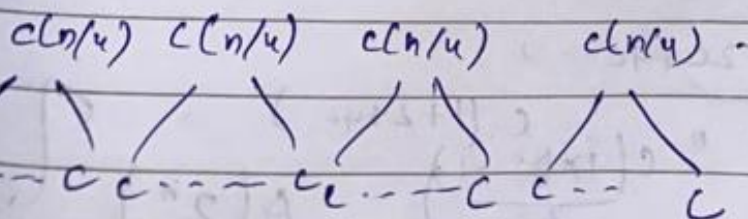 c(n/4) c(n/4) c(n/4) c(n/4)
--- c c --- c c --- c c --- c